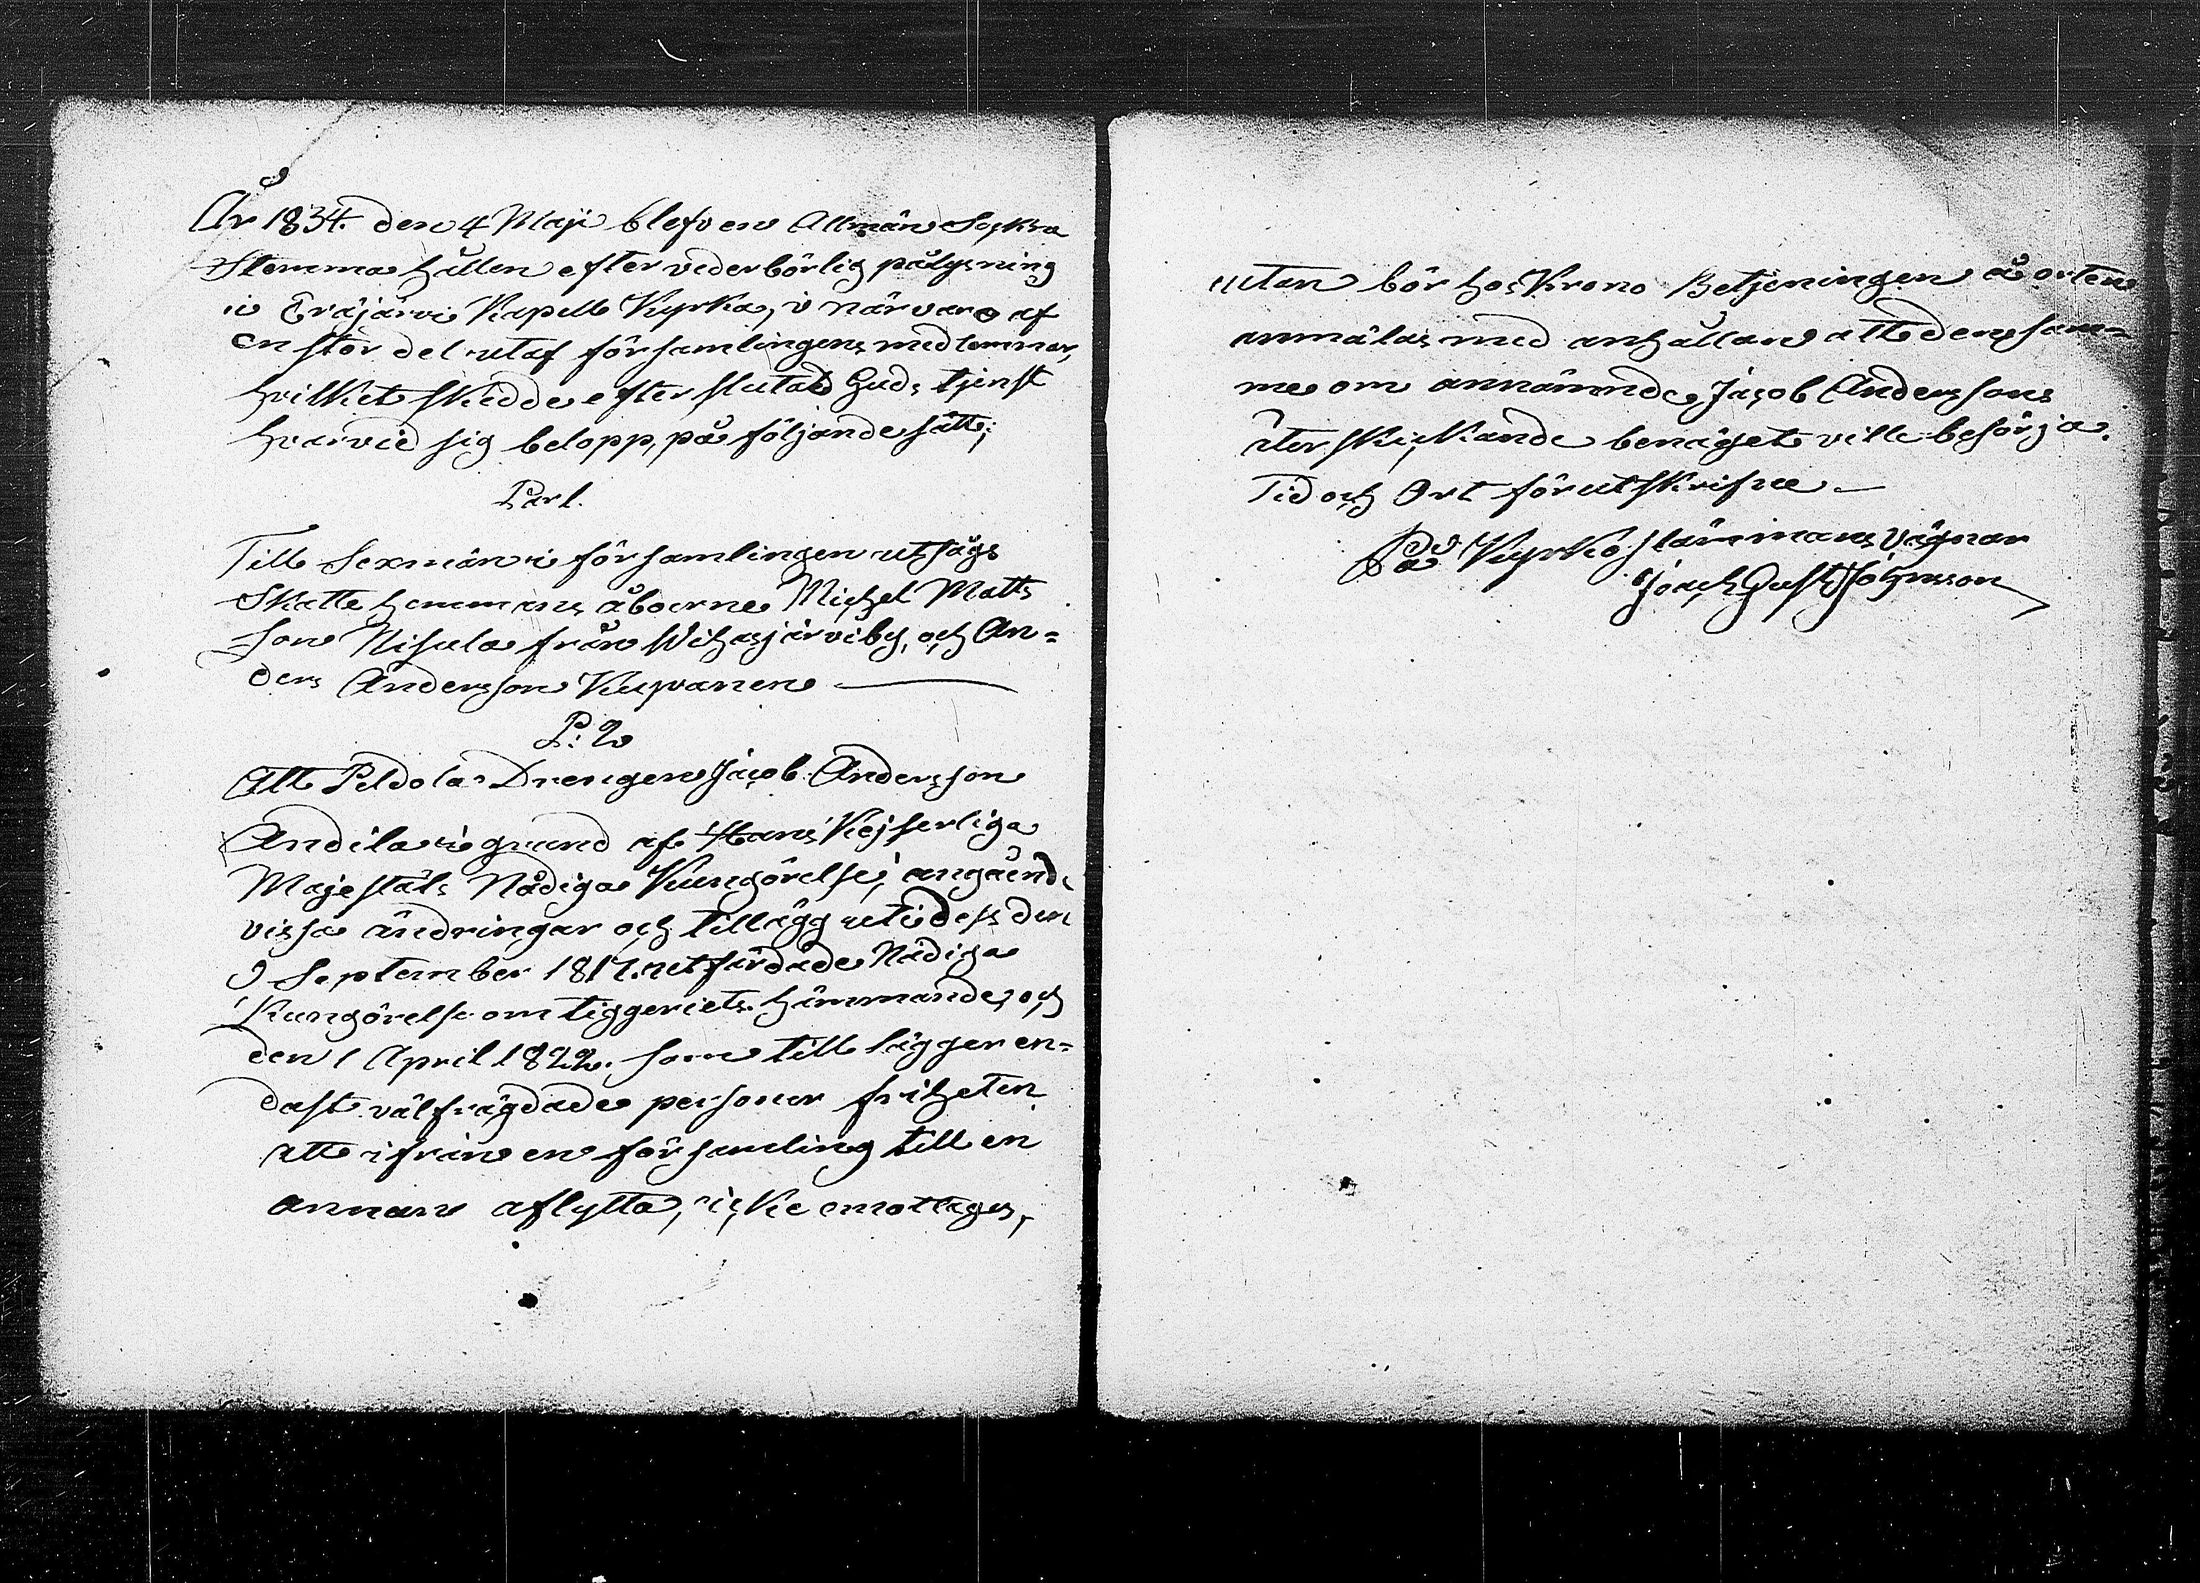 År 1834. den 4 Maji blef en Allmän Sockne
Stemma hållen efter vederbörlig pålysning
i Eräjärvi Kapell Kyrka, i närvaro af
en stor del utaf församlingens medlemmar,
hvilket skedde efter slutad Guds tjenst
hvarvid sig belopp, på följande sätt;
Par 1.
Till Sexmän i församlingen utsågs
Skatte hemmans åboerne Michel Matts
son Nisula från Wihasjärvi by, och An=
ders Andersson Kupanen
P: 2
Att Peldola Drengen Jacob Andersson
Andila i grund af Hans Kejserliga
Majestäts Nådiga Kungörelse, angående
vissa ändringar och tillägg uti dess den
9 September 1817. utfärdade Nådiga
Kungörelse om tiggeriets hämmande, och
den 1 April 1822. som tillägger en=
dast välfrägdade personer friheten
att ifrån en församling till en
annan aflytta, icke emottages,
utan bör hos Krono Betjeningen å orten
anmälas med anhållan att den sam=
me om annämnde Jacob Anderssons
återskickande benäget ville besörja.
Tid och Ort förutskrifne
På Kyrkostämmans vägnar
Joach Gust Johnsson